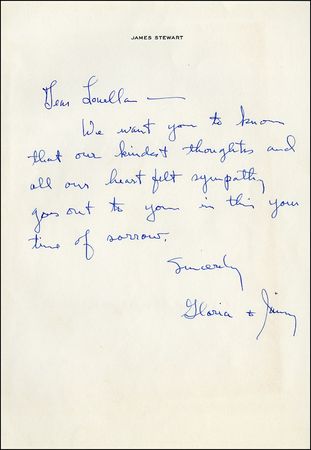 JAMES STEWART
Dear Louella —
We want you to know
that our kindest thoughts and
all our heart felt sympathy
goes out to you in this your
time of sorrow.
Sincerely
Gloria + Jimmy